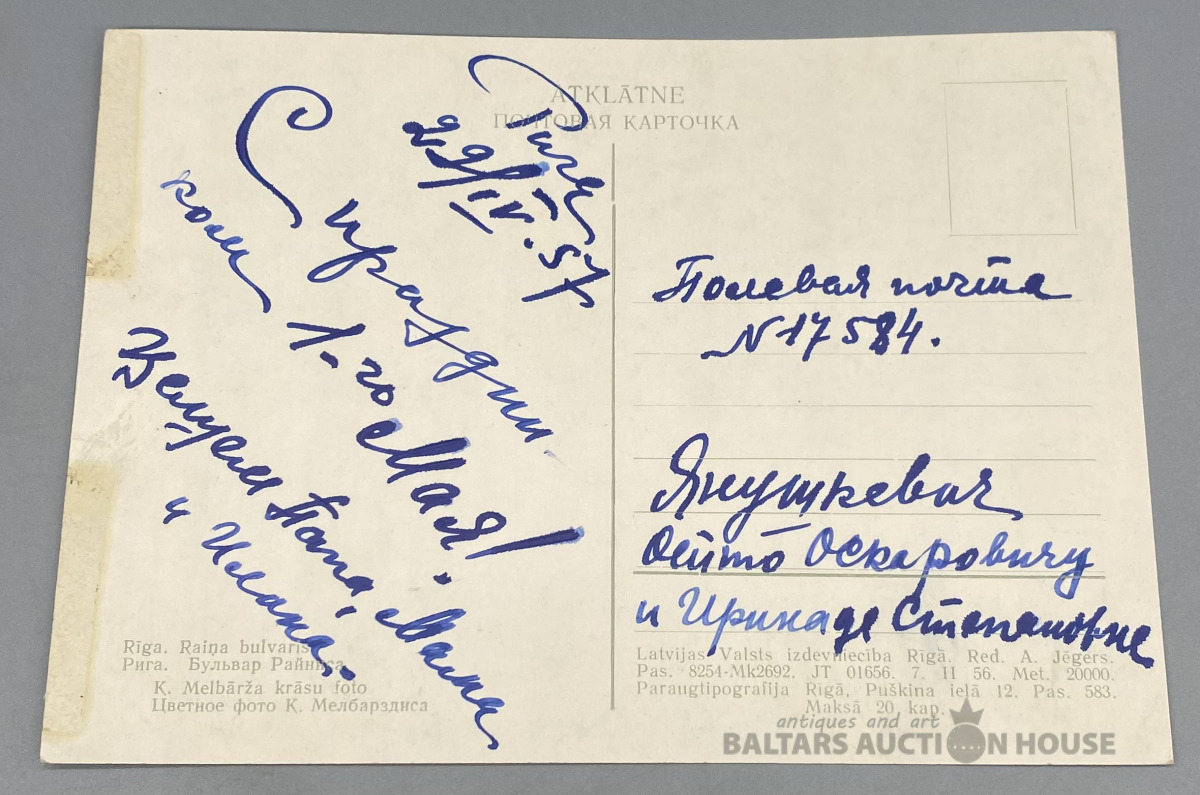 ATKLĀTNE
ПОЧТОВАЯ КАРТОЧКА
Рига
29/IV.57
С праздни-
ком
1-го Мая!
Целуем Папа, Мама
и Илана.
Полевая почта
N 17584.
Янушкевич
Оскаровичу
и Ираиде Степановне
Rīga. Raiņa bulvaris
Рига. Бульвар Райниса
K. Melbārža krāsu foto
Цветное фото К. Мелбарздиса
Latvijas Valsts izdevniecība Rīgā. Red. A. Jēgers.
Pas. 8254-Mk2692. JT 01656. 7. II 56. Met. 20000.
Paraugtipografija Rīgā, Puškina ielā 12. Pas. 583.
Maksā 20 kap.
antiques and art
BALTARS AUCTION HOUSE